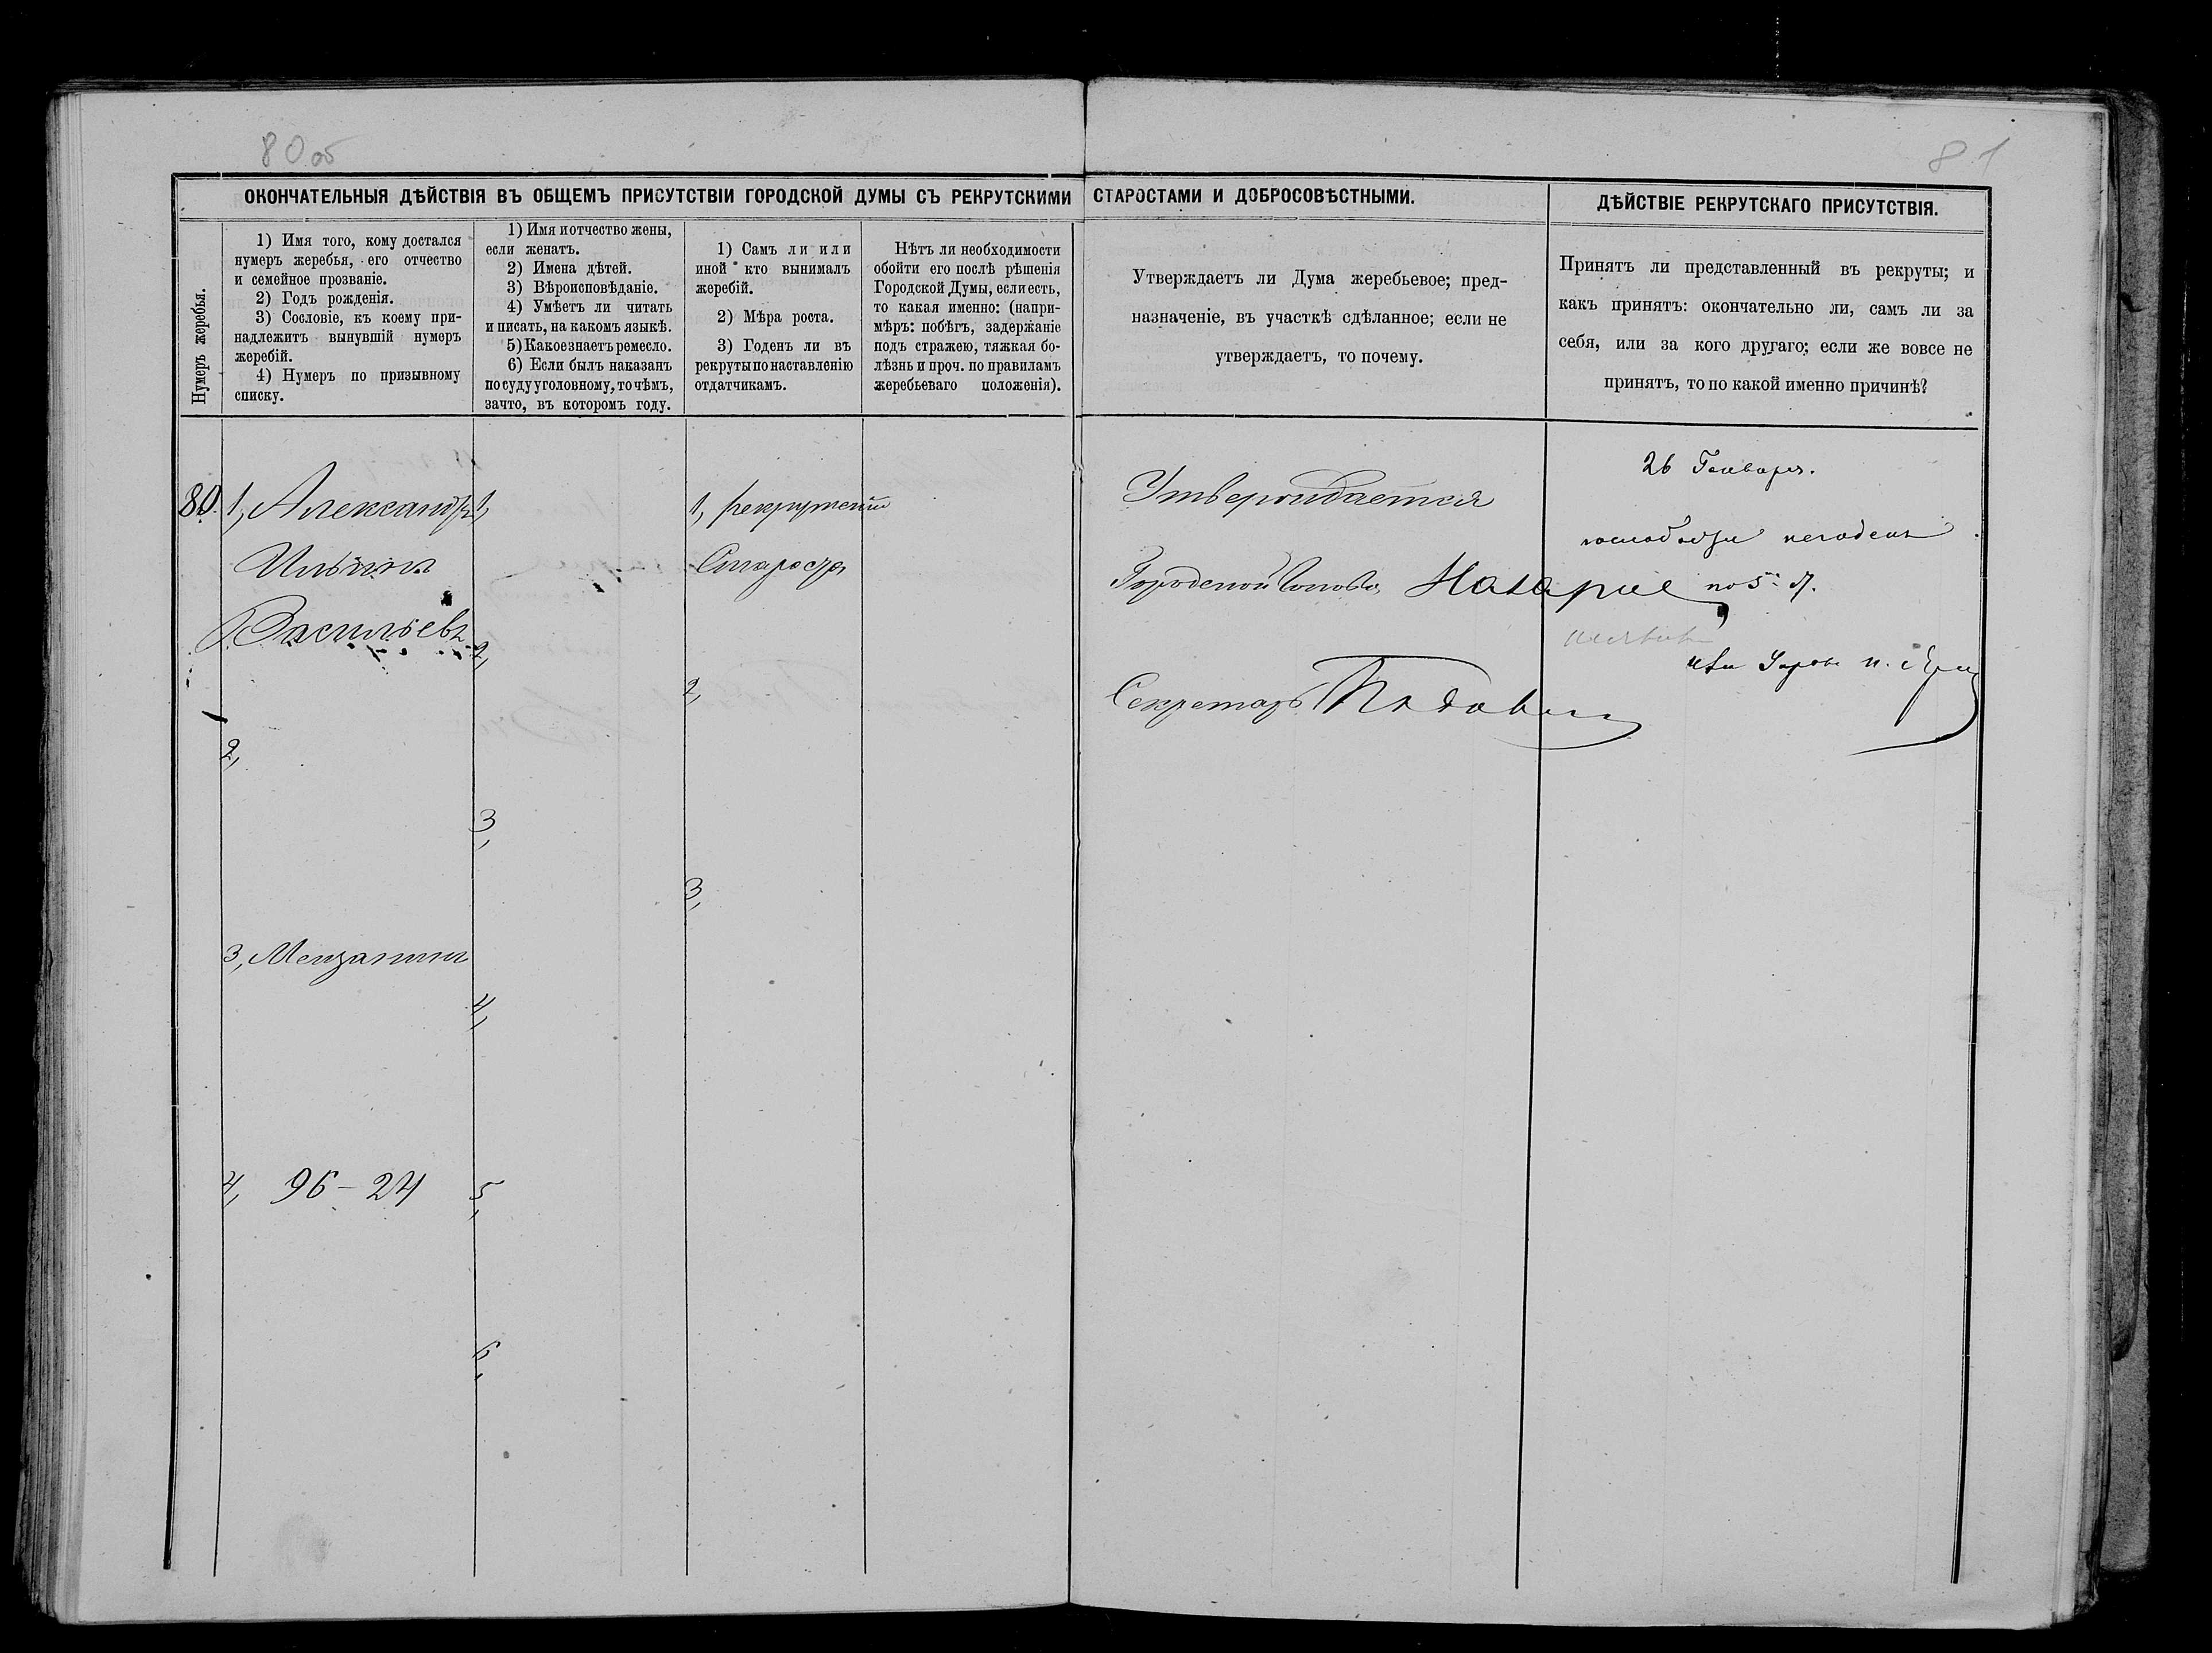 80 об
81
ОКОНЧАТЕЛЬНЫЯ ДѢЙСТВІЯ ВЪ ОБЩЕМЪ ПРИСУТСТВІИ ГОРОДСКОЙ ДУМЫ СЪ РЕКРУТСКИМИ СТАРОСТАМИ И ДОБРОСОВѢСТНЫМИ.
ДѢЙСТВІЕ РЕКРУТСКАГО ПРИСУТСТВІЯ.
Нумеръ жеребья.
1) Имя того, кому достался
нумеръ жеребья, его отчество
и семейное прозваніе.
2) Годъ рожденія.
3) Сословіе, къ коему при-
надлежитъ вынувшій нумеръ
жеребій.
4) Нумеръ по призывному
списку.
1) Имя и отчество жены,
если женатъ.
2) Имена дѣтей.
3) Вѣроисповѣданіе.
4) Умѣетъ ли читать
и писать, на какомъ языкѣ.
5) Какое знаетъ ремесло.
6) Если былъ наказанъ
по суду уголовному, то чѣмъ,
зачто, въ которомъ году.
1) Самъ ли или
иной кто вынималъ
жеребій.
2) Мѣра роста.
3) Годенъ ли въ
рекруты по наставленію
отдатчикамъ.
Нѣтъ ли необходимости
обойти его послѣ рѣшенія
Городской Думы, если есть,
то какая именно: (напри-
мѣръ: побѣгъ, задержаніе
подъ стражею, тяжкая бо-
лѣзнь и проч. по правиламъ
жеребьеваго положенія).
Утверждаетъ ли Дума жеребьевое; пред-
назначеніе, въ участкѣ сдѣланное; если не
утверждаетъ, то почему.
Принятъ ли представленный въ рекруты; и
какъ принятъ: окончательно ли, самъ ли за
себя, или за кого другаго; если же вовсе не
принятъ, то по какой именно причинѣ?
80
1, Александръ
Ильинъ
Васильевъ
2,
3, Мещанинъ
4, 96-24
1,
2,
3,
4,
5,
6,
1, рекрутский
Староста
2,
3,
Утверждается
Городской Голова
Секретарь
26 Генваря.
негоденъ
по 5